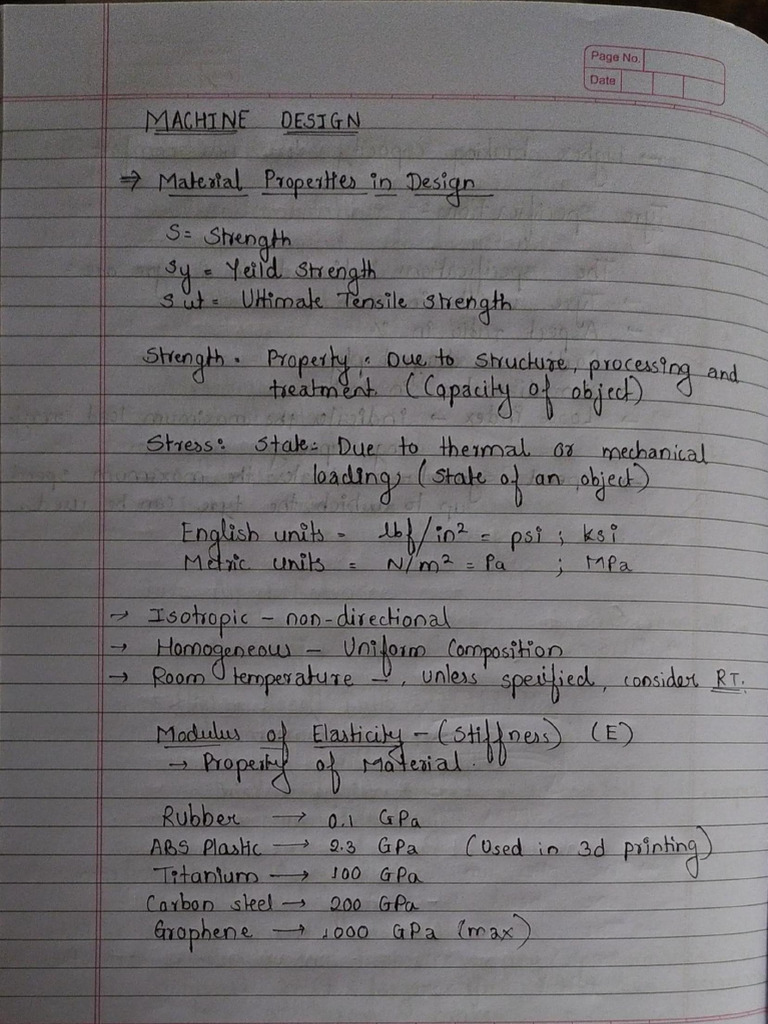 Page No.
Date
MACHINE DESIGN
⇒ Material Properties in Design
S = Strength
Sy = Yeild Strength
Sut = Ultimate Tensile Strength
Strength : Property : Due to structure, processing and
treatment (Capacity of object)
Stress : State : Due to thermal or mechanical
loading, (state of an object)
English units = lbf/in² = psi ; ksi
Metric units = N/m² = Pa ; MPa
→ Isotropic – non-directional
→ Homogeneous – Uniform Composition
→ Room temperature –, unless specified, consider RT.
Modulus of Elasticity – (Stiffness) (E)
→ Property of Material.
Rubber → 0.1 GPa
ABS Plastic → 2.3 GPa (Used in 3d printing)
Titanium → 100 GPa
Carbon steel → 200 GPa
Graphene → 1000 GPa (max)